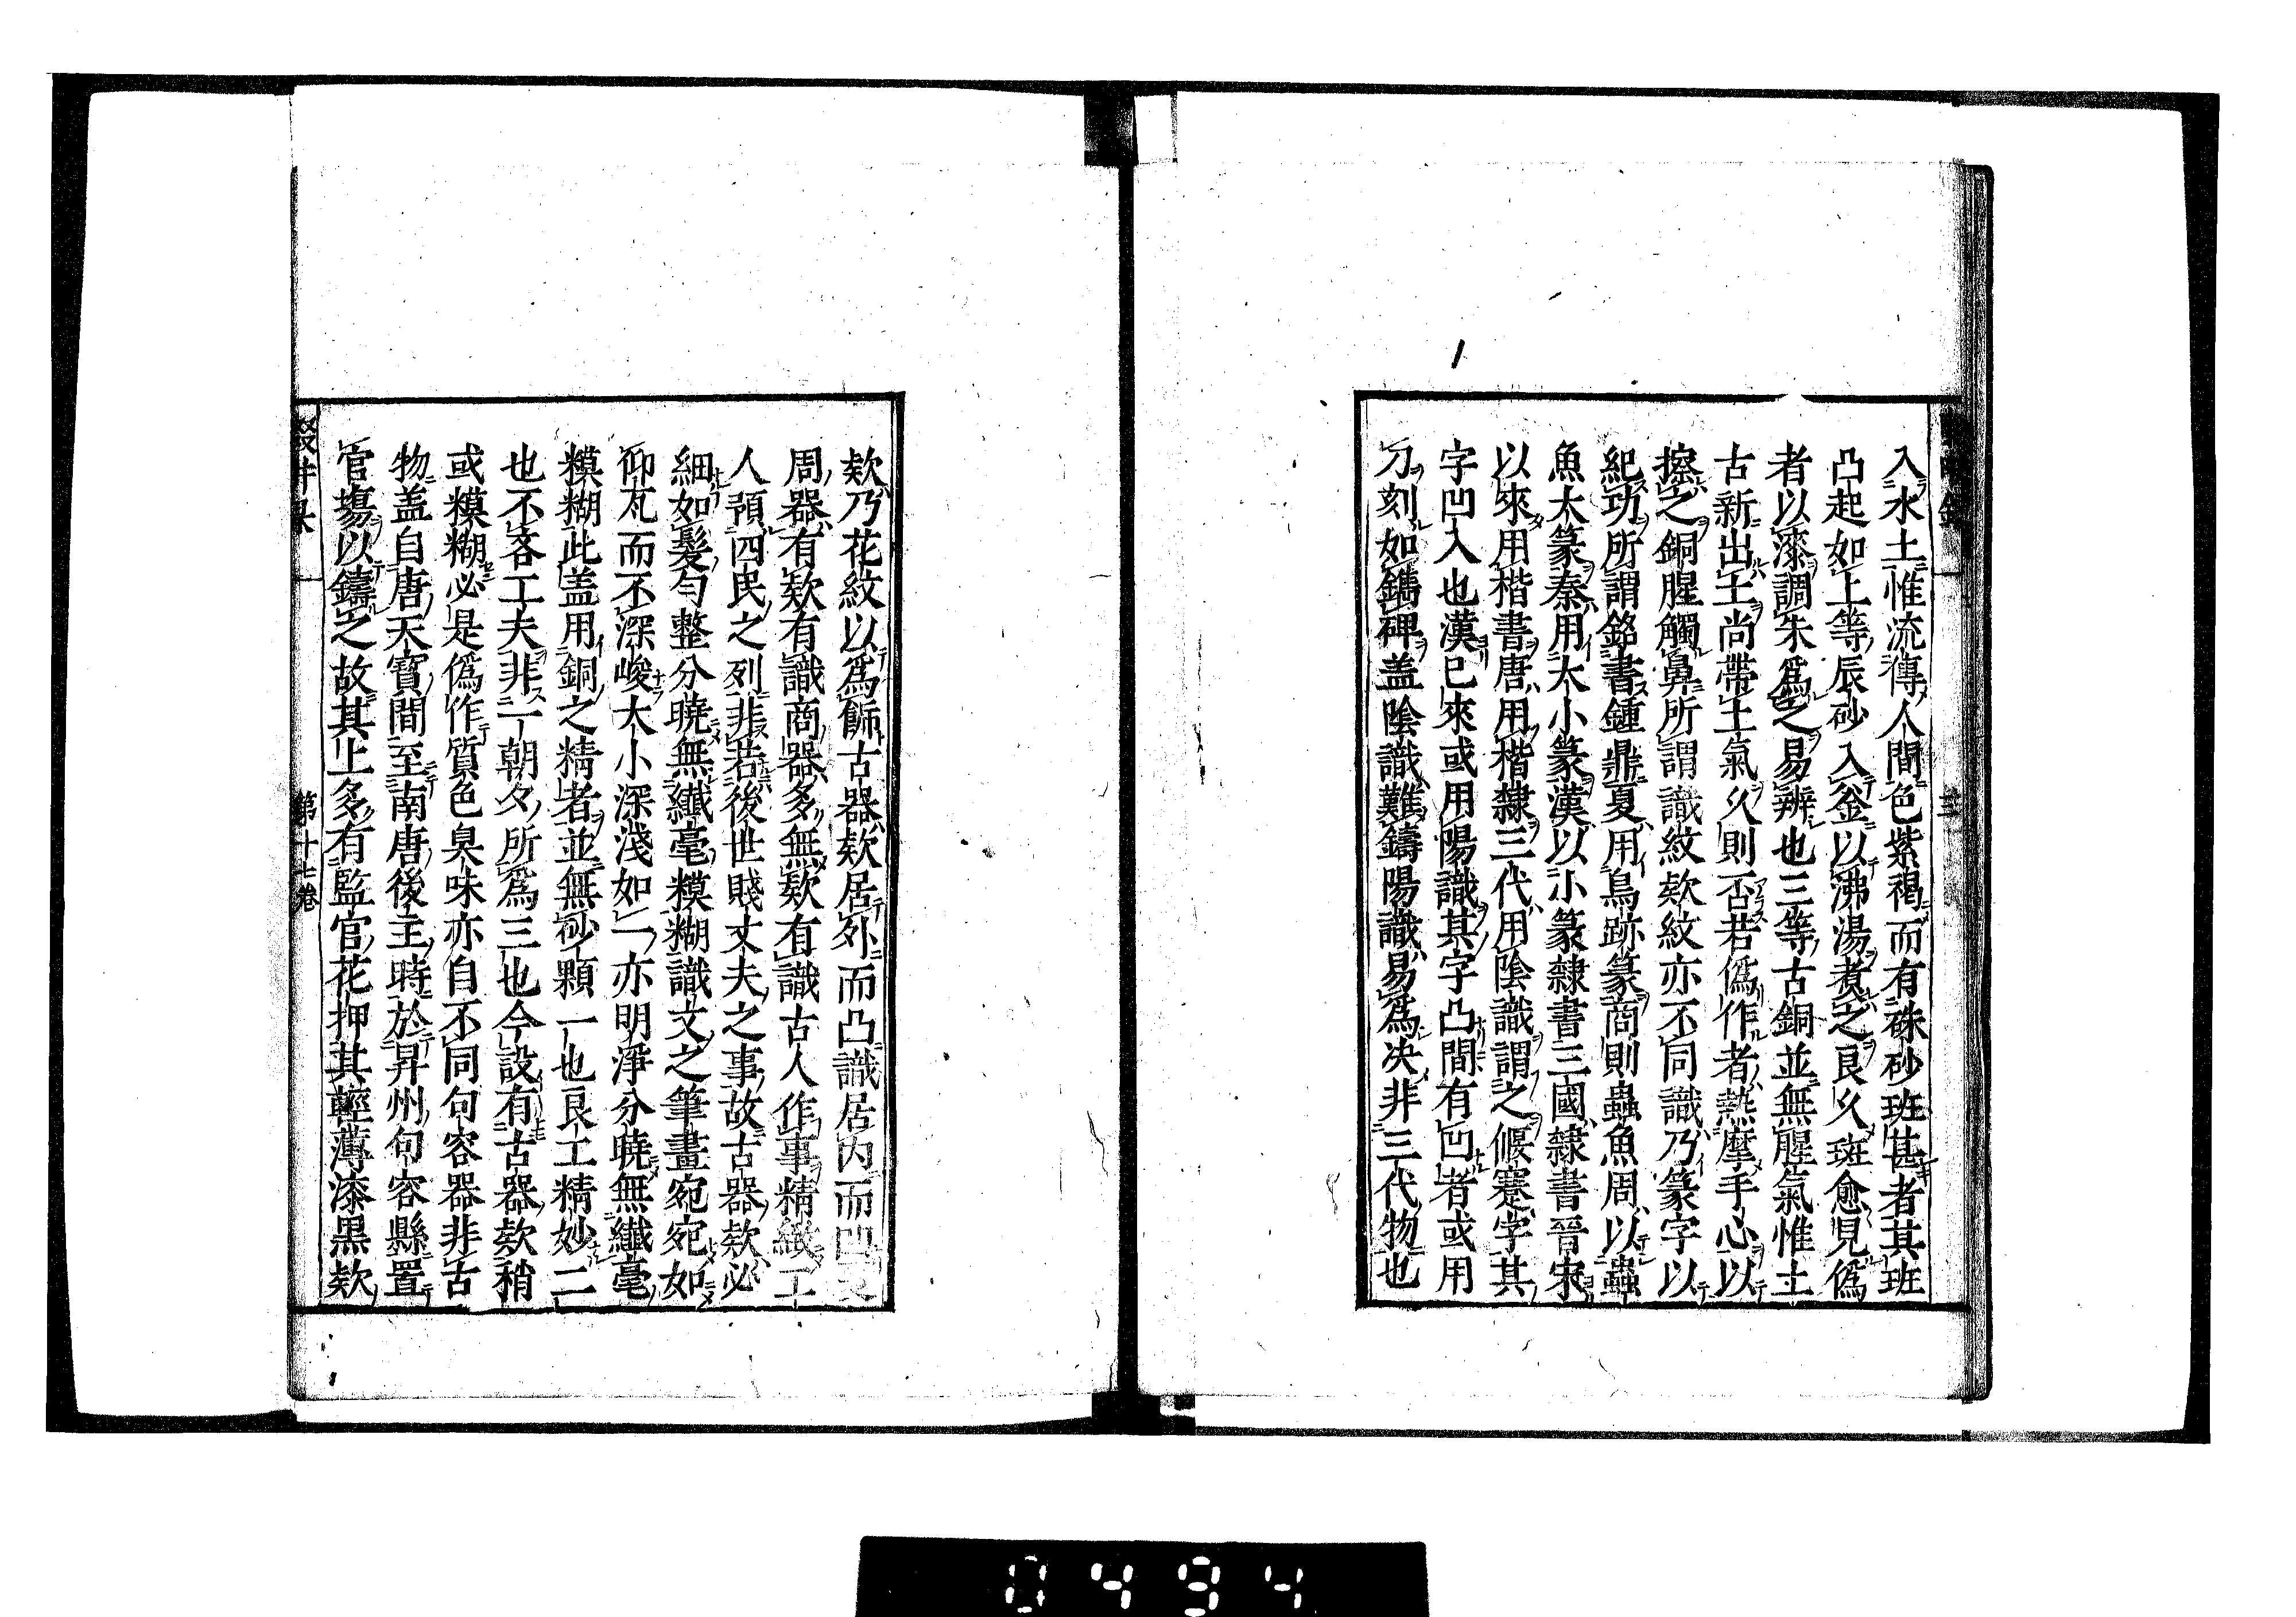 入水土惟流傳人間色紫褐而有硃砂班甚者其班
凸起如上等辰砂入釜以沸湯煮之良久斑愈見僞
者以漆調朱爲之易辨也三等古銅並無腥氣惟土
古新出土尚帶土氣久則否若僞作者熱摩手心以
擦之銅腥觸鼻所謂識紋欵紋亦不同識乃篆字以
紀功所謂銘書鍾鼎夏用鳥跡篆商則蟲魚周以蟲
魚大篆秦用大小篆漢以小篆隸書三國隸書晉宋
以來用楷書唐用楷隸三代用陰識謂之偃蹇字其
字凹入也漢已來或用陽識其字凸間有凹者或用
刀刻如鐫碑盖陰識難鑄陽識易爲决非三代物也
欵乃花紋以爲餙古器欵居外而凸識居内而凹
周器有欵有識商器多無欵有識古人作事精緻工
人預四民之列非若後世賤丈夫之事故古器欵必
細如髮勻整分曉無纎毫糢糊識文之筆畫宛宛如
仰瓦而不深峻大小深淺如一亦明淨分曉無纎毫
糢糊此盖用銅之精者並無砂顆一也良工精妙二
也不吝工夫非一朝夕所爲三也今設有古器欵稍
或糢糊必是僞作質色臭味亦自不同句容器非古
物盖自唐天寳間至南唐後主時於昇州句容縣置
官塲以鑄之故其上多有監官花押其輕薄漆黒欵
第十七卷